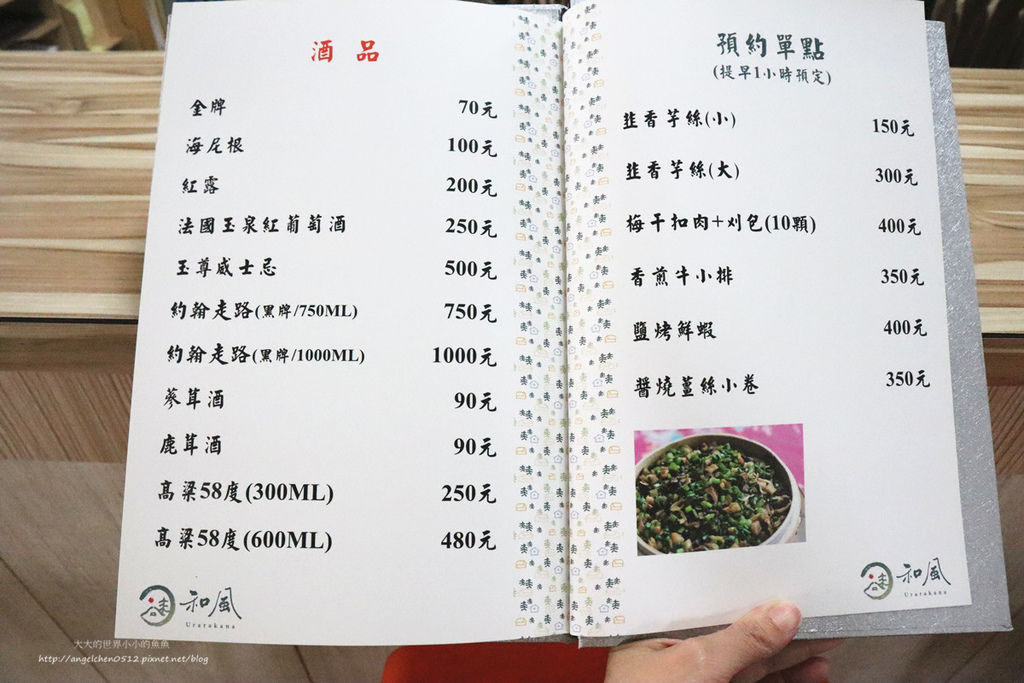 酒品
金牌 70元
海尼根 100元
紅露 200元
法國玉泉紅葡萄酒 250元
玉尊威士忌 500元
約翰走路(黑牌/750ML) 750元
約翰走路(黑牌/1000ML) 1000元
蔘茸酒 90元
鹿茸酒 90元
高粱58度(300ML) 250元
高粱58度(600ML) 480元
和風
Urarakana
預約單點
(提早1小時預定)
韭香芋絲(小) 150元
韭香芋絲(大) 300元
梅干扣肉+刈包(10顆) 400元
香煎牛小排 350元
鹽烤鮮蝦 400元
醬燒薑絲小卷 350元
和風
Urarakana
大大的世界小小的魚魚
http://angelchen0512.pixnet.net/blog